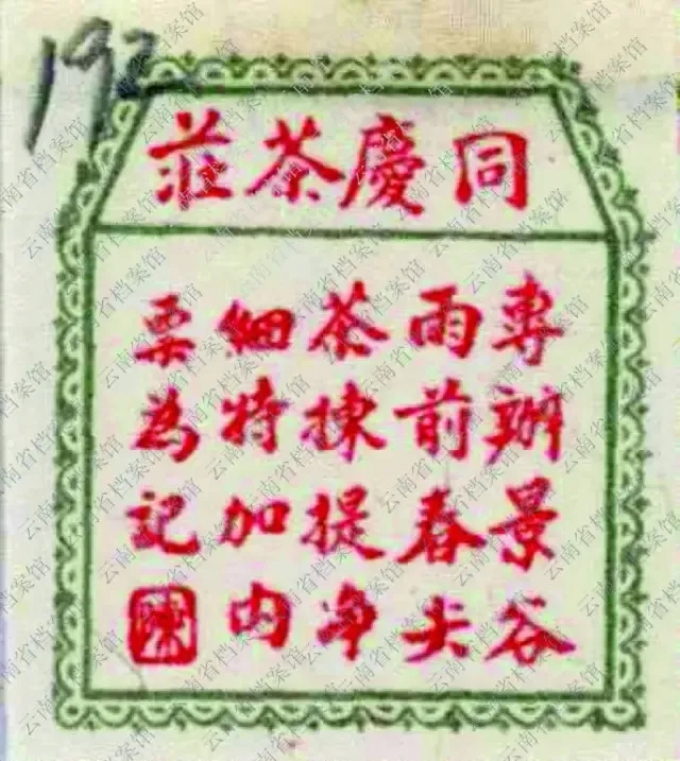 同慶茶莊
專辦景谷
雨前春尖
茶揀提净
細特加内
票為記
192
云南省档案馆